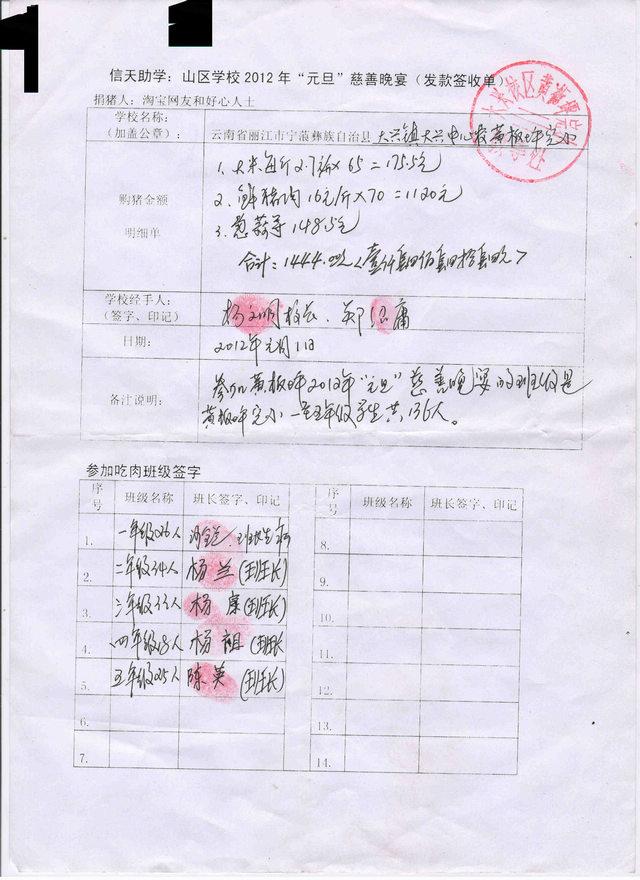 信天助学：山区学校2012年“元旦”慈善晚宴（发款签收单）
捐猪人：淘宝网友和好心人士
学校名称：
（加盖公章）：
云南省丽江市宁蒗彝族自治县大兴镇大兴中心校黄板坪完小
购猪金额
明细单
1. 大米每斤2.7元×65=175.5元
2. 鲜猪肉16元/斤×70=1120元
3. 葱蒜等148.5元
合计：1444.00元
学校经手人：
（签字、印记）
杨文明校长、郑绍
日期：
2012年元月1日
备注说明：
参加黄板坪2012年“元旦”慈善晚宴的班级是
黄板坪完小一至五年级学生共136人。
参加吃肉班级签字
序号 班级名称 班长签字、印记 序号 班级名称 班长签字、印记
1. 一年级26人 8.
2. 二年级34人 杨兰（班长） 9.
3. 三年级33人 杨（班长） 10.
4. 四年级18人 杨（班长 11.
5. 五年级25人 陈英（班长） 12.
6. 13.
7. 14.